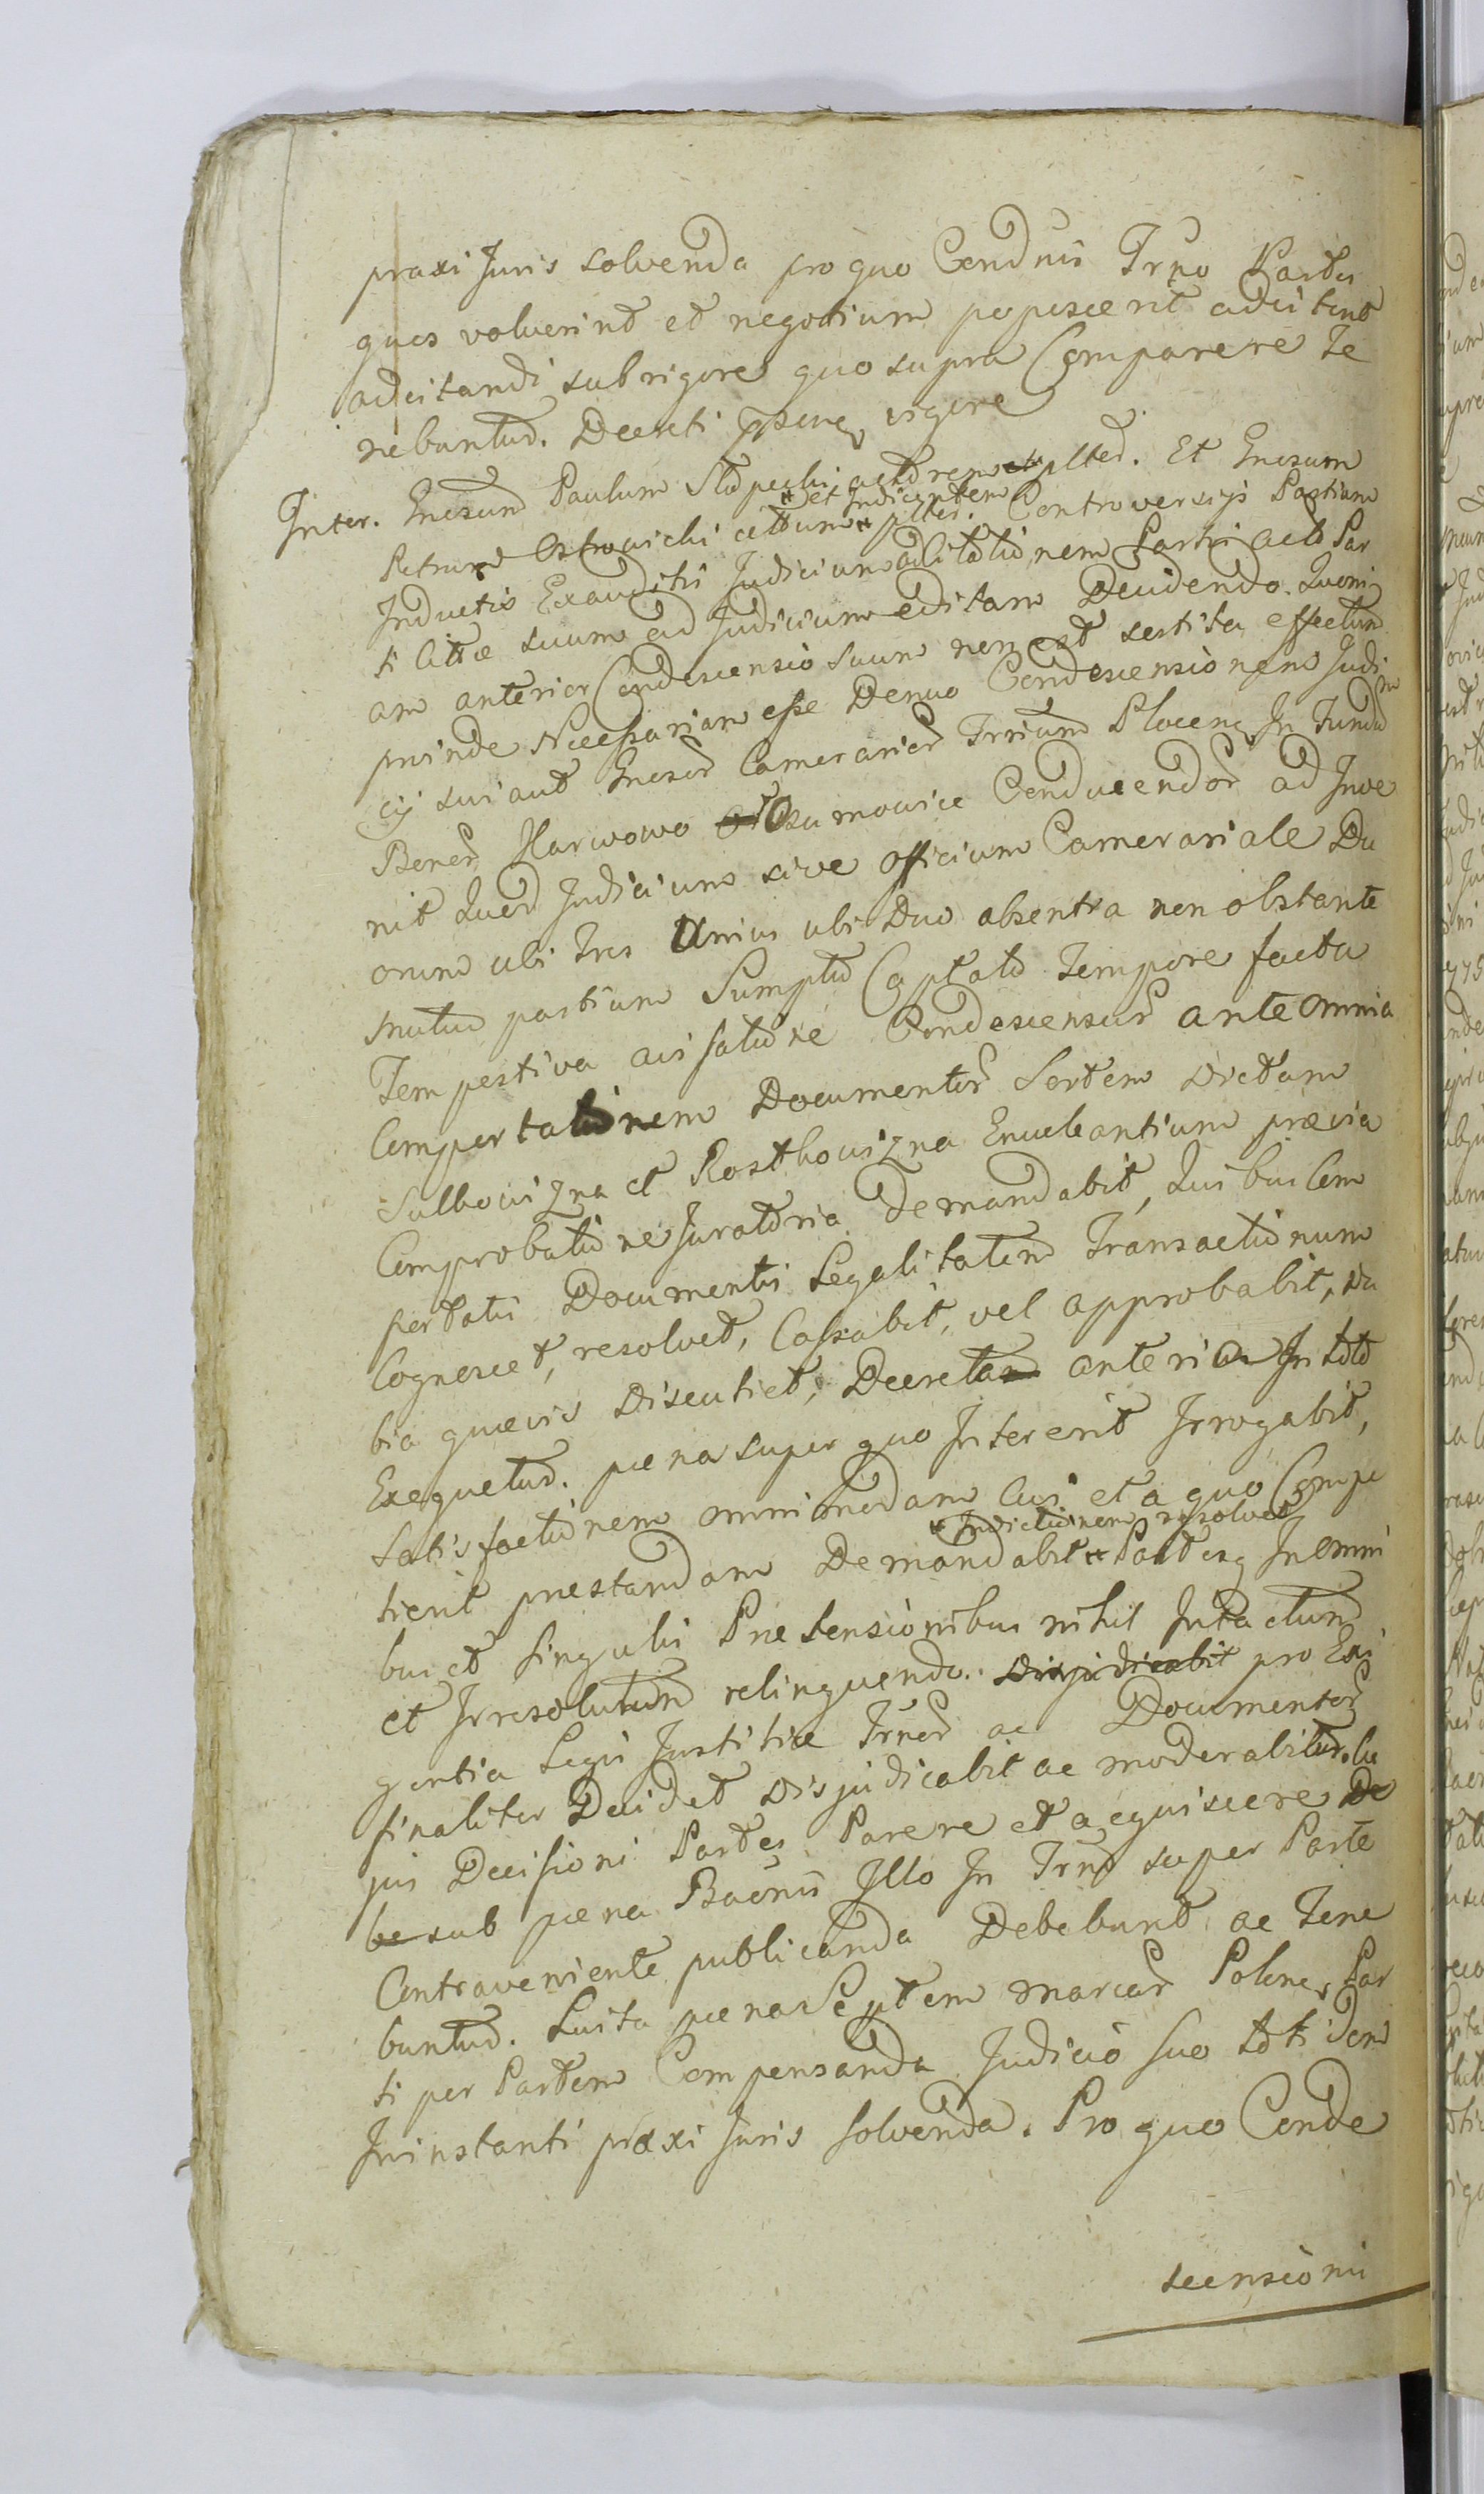 praxi Juris solvenda pro quo Condnis Trno Partes
quos voluerint et negotium poposcerit adcitent
adcitandi sub rigore quo supra Comparere Te
nebuntur. Decreti pñsenq vigore
Inter. Gnosum Paulum Stupecki actorem plter. Et Gnosum
Petrum Ostrowicki cittum * pltes. Controversijs Partium
* et Indicantem
Inductis Exauditis Judicium adcitationem Partis actæ Par
ti Cittæ suum ad Judicium editam Decidendo. Quoni
am anterior Condescensio suum non est sortita effectum
proinde Necessariam esse Denuo Condescensionem Judi
cij sui aut Gnosor Camerarior Trrium Plocen. In Fundum
Bonor Karwowo Osumowice Conducendor ad Inve
nit Quod Judicium sive officium Camerariale Du
orum ubi tres Unius ubi Duo absentia non obstante
mutuo partium Sumptu Captato Tempore facta
Tempestiva avisatione Condescensur ante omnia
Comportationem Documentor Sortem dictam
Sulkowizna et Rostkowizna Enucleantium prævia
Comprobatione Juratoria Demandabit, Quibus Com
portatis Documentis Legalitatem Transactionum
Cognoscet, resolvet, Cassabit, vel approbabit, Du
bia quævis Discutiet, Decreta anteriora In toto
Exequetur. pœna super quo Intererit Irrogabit,
Satisfactionem omnimodam Cui et a quo Compe
tierit præstandam Demandabit * Partesq In omni
* Indictionem resolvet
bus et Singulis Prætensionibus nihil Intactum
et Irresolutum relinquendo. Disjudicabit pro Exi
gentia Legis Justitiæ Trnor ac Documentor
finaliter Decidet Disjudicabit ac moderabitur. Cu
jus Decisioni Partes Parere et acquiescere De
be sub pœna Banniis Illo In Trno super Parte
Contraveniente publicanda Debebunt ac Tene
buntur. Luita pœna Septem marcar Polon. Par
ti per Partem Compensanda Judicio suo totidem
In instanti praxi Juris solvenda. Pro quo Conde
scensionis